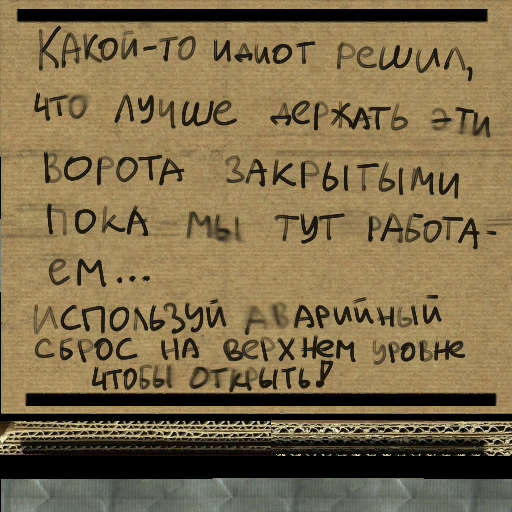 Какой-то идиот решил,
что лучше держать эти
ворота закрытыми
пока мы тут работа-
ем...
Используй аварийный
сброс на верхнем уровне
чтобы открыть!